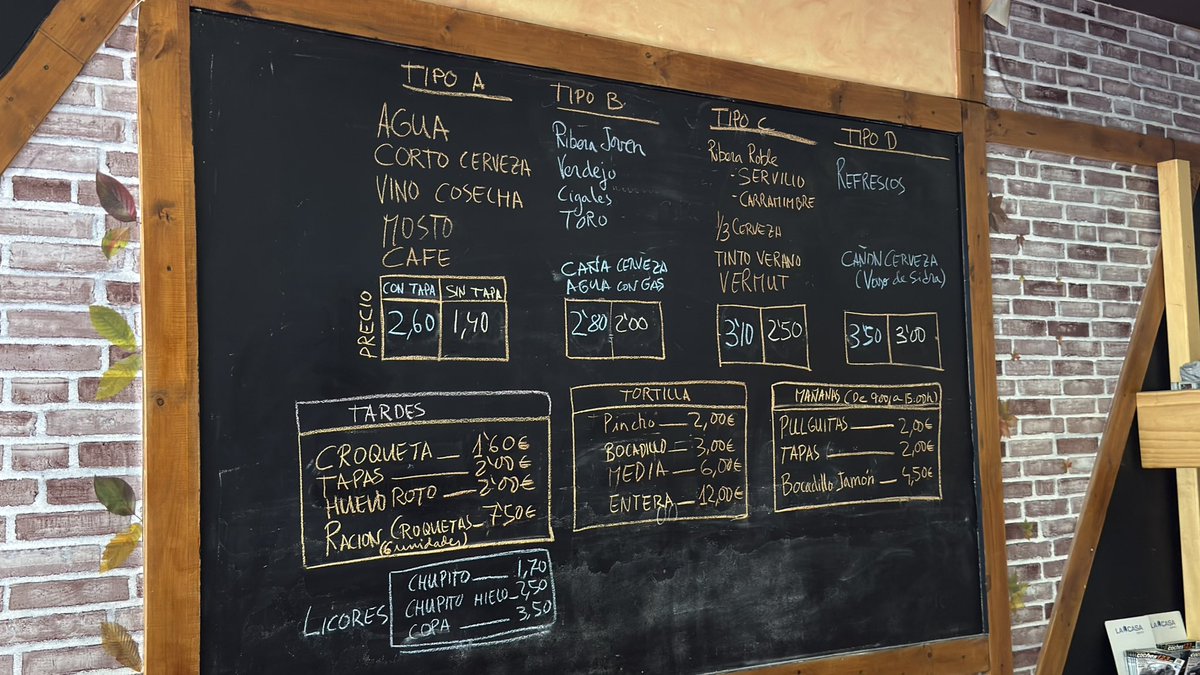 TIPO A
AGUA
CORTO CERVEZA
VINO COSECHA
MOSTO
CAFE
PRECIO
CON TAPA SIN TAPA
2,60 1,40
TIPO B
Ribera Joven
Verdejo
Cigales
TORO
CAÑA CERVEZA
AGUA CON GAS
2'80 2'00
TIPO C
Ribera Roble
- SERVILIO
- CARRAMIMBRE
1/3 CERVEZA
TINTO VERANO
VERMUT
3'10 2'50
TIPO D
REFRESCOS
CAÑON CERVEZA
(Vaso de Sidra)
3'50 3'00
TARDES
CROQUETA — 1'60€
TAPAS — 2'00€
HUEVO ROTO — 2'00€
RACION CROQUETAS — 7'50€
(6 unidades)
TORTILLA
Pincho — 2,00€
BOCADILLO — 3,00€
MEDIA — 6,00€
ENTERA — 12,00€
MAÑANAS (De 9:00 a 15:00h)
PULGUITAS — 2,00€
TAPAS — 2,00€
Bocadillo Jamón — 4,50€
LICORES
CHUPITO — 1,70
CHUPITO HIELO — 2,50
COPA — 3,50
LA CASA
LA CASA
coches